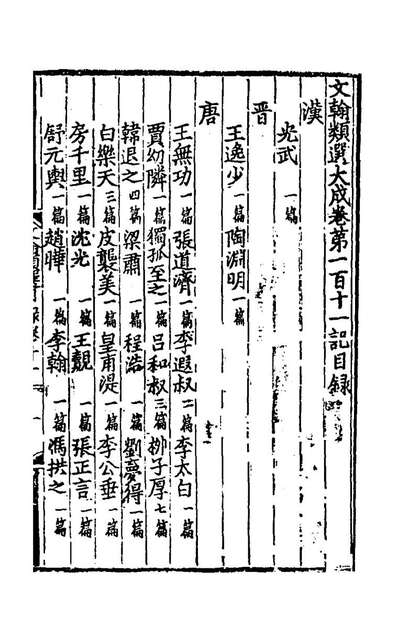 文翰類選大成卷第一百十一記目錄
漢
光武一篇
晋
王逸少一篇陶淵明一篇
唐
王無功一篇張道濟一篇李遐叔二篇李太白一篇
賈幼隣一篇獨孤至之一篇呂和叔三篇柳子厚七篇
韓退之四篇梁肅一篇程浩一篇劉夢得一篇
白樂天三篇皮襲美一篇皇甫湜一篇李公垂一篇
房千里一篇沈光一篇王覿一篇張正言一篇
舒元輿一篇趙曄一篇李翰一篇馮拱之一篇